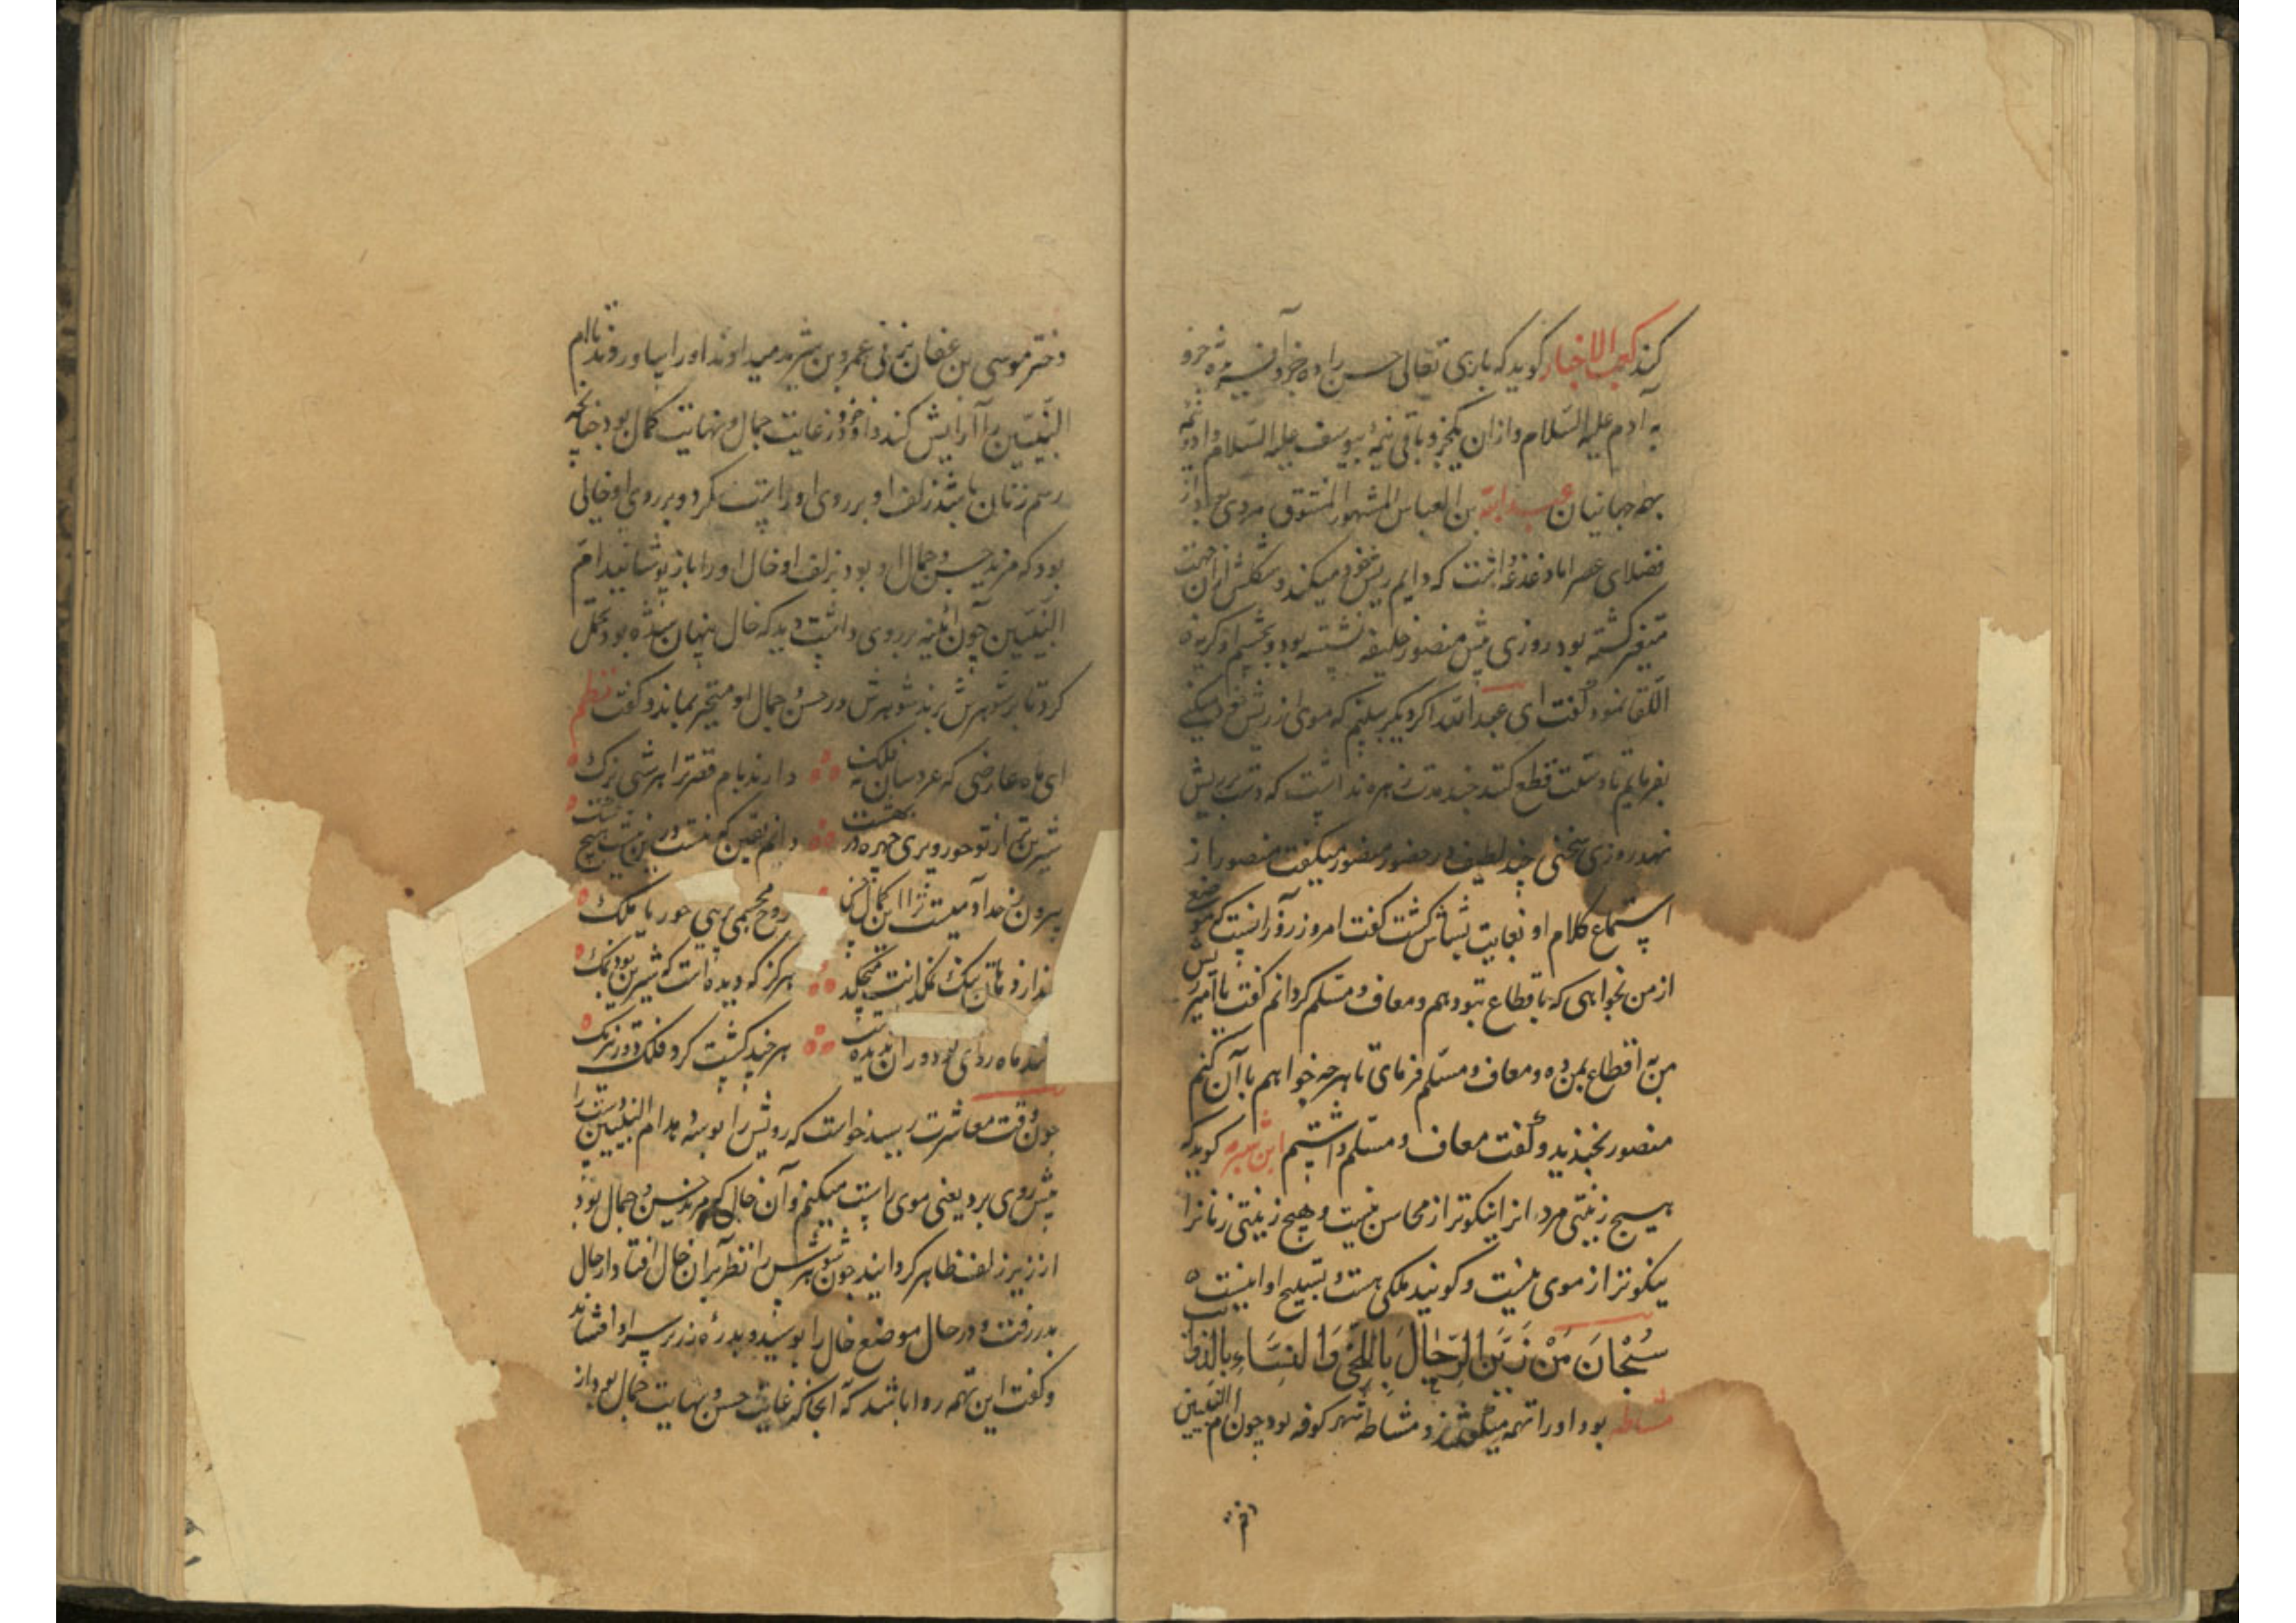 کند کعب الاخبار کوید که باری تعالی حسن را ده جزو آفرید نه جزو
به آدم علیه السّلام و ازان یکجزو باقی نیمهٔ بیوسف علیه السّلام داد و نیمه
بهمه جهانیان عبد الله بن العباس المشهور المنتوق مردی بود از
فضلای عصر اما دغدغهٔ داشت که دایم ریش خود میکند و شکلش ازان جهت
متغیر کشته بود روزی پیش منصور خلیفه نشسته بود و بچشم او کریه
اللقا نمود کفت ای عبد الله اکر دیکر بینم که موی از ریش خود میکنی
بفرمایم تا دستت قطع کنند چند مدت زهره نداشت که دست بریش
نهد روزی سخنی چند لطیف در حضور منصور میکفت منصور از
استماع کلام او بغایت بشاش کشت کفت امروز روز آنست که موضع
از من بخواهی که باقطاع بتو دهم و معاف و مسلم کردانم کفت یا امیر ریش
من به اقطاع بمن ده و معاف و مسلم فرمای تا هرچه خواهم با آن کنم
منصور بخندید و کفت معاف و مسلم داشتم کوید که
هیچ زینتی مردانرا نیکوتر از محاسن نیست و هیچ زینتی زنانرا
نیکوتر از موی نیست و کویند ملکی هست و تسبیح او اینست
سُبْحَانَ مَنْ زَیَّنَ الرِّجَالَ بِاللِّحَی وَ النِّسَاءِ بِالذوائب
مشاطه بود او را میکفتند و مشاطه شهر کوفه بود چون ام النبیین
دختر موسی بن عفان بعمرو بن میدادند او را بیاوردند تا ام
النبیین را آرایش کند و او خود در غایت جمال و نهایت کمال بود چنانچه
رسم زنان باشد زلف او بر روی او راست کرد و بر روی او خالی
بود که مزید حسن و جمال او بود بزلف او خال او را باز پوشانید ام
النبیین چون آئینه بر روی داشت دید که خال پنهان شده بود تحمل
کرد تا بر شوهرش برند شوهرش در حسن و جمال او متحیر بماند و کفت نظم
ای ماه عارضی که عروسان نه فلک دارند بام قصر ترا هر شبی بزک
شیرین تر از تو حور و پری چهره در بهشت دانم یقین که نیست درین نیست هیچ شک
بیرون ز حد آدمیت ترا این کمال حسن روح مجسمی پری حور یا ملک
نمکدانت میچکد هرکز که دیده است که شیرین بود نمک
ماه روی تو دوران ندیده است هرچند کشت کرد فلک
چون وقت معاشرت رسید خواست که رویش را بوسه دهد ام النبیین دست را
پیش روی برد یعنی موی راست میکنم و آن خال که مزید حسن و جمال بود
از زیر زلف ظاهر کردانید چون شوهرش را نظر بر آن خال افتاد از حال
بدر رفت و در حال موضع خال را بوسید و بدره زر بر سر او افشاند
و کفت این تهمه روا باشد که آنجا که غایت حسن و نهایت جمال بود از